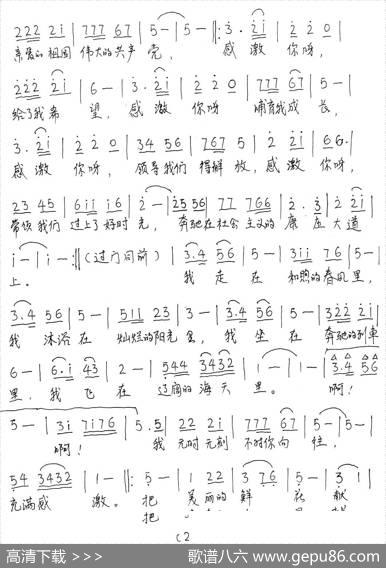 2̇2̇2̇ 2̇i | 777 67 | 5 — | 5 — ‖: 3̇· 2̇i | 2̇ 2̇ 0 |
亲爱的祖国 伟大的共产党， 感激 你呀，
2̇2̇2̇ 2̇i | 6 — | 3̇· 2̇i | 2̇ 2̇ 0 | 777 67 | 5 — |
给了我希望，感激 你呀 哺育我成长，
3̇· 2̇i | 2̇ 2̇ 0 | 34 56 | 767 5 | 2̇ 2̇i | 66· |
感激 你呀，领导我们 得解放，感激 你呀，
23 45 | 6ii i6 | 2̇ — | 2̇5 56 | 77 766 | 2̇· 3̇ | 2̇ 2̇i |
带领我们 过上了好时光，奔驰在社会主义的康庄大道
i — | i — :‖ (过门同前) | 3·4 56 | 5 — | 3ii 76 | 5 — |
上。 我走在 和煦的春风里，
3·4 56 | 5 — | 511 23 | 3 — | 3·4 56 | 5 — | 3̇2̇2̇ 2̇i |
我沐浴在 灿烂的阳光里，我坐在 奔驰的列车
6 — | 6·i 43 | 2 — | 544 3432 | 1 — | 1 — | 3·4 56 |
里，我飞在 辽阔的海天里。 啊！
5 — | 3i 7i76 | 5·5 | 22 2i | 777 67 | 5 — | 5 — |
啊！ 我 无时无刻 不对你向往，
54 3432 | 1 — ‖: 5 — | 1 22 | 3 76 | 5 — | 3 1 |
充满感激。 把 美丽的鲜花献
把
(2
高清下载 >>>
歌谱八六 www.gepu86.com